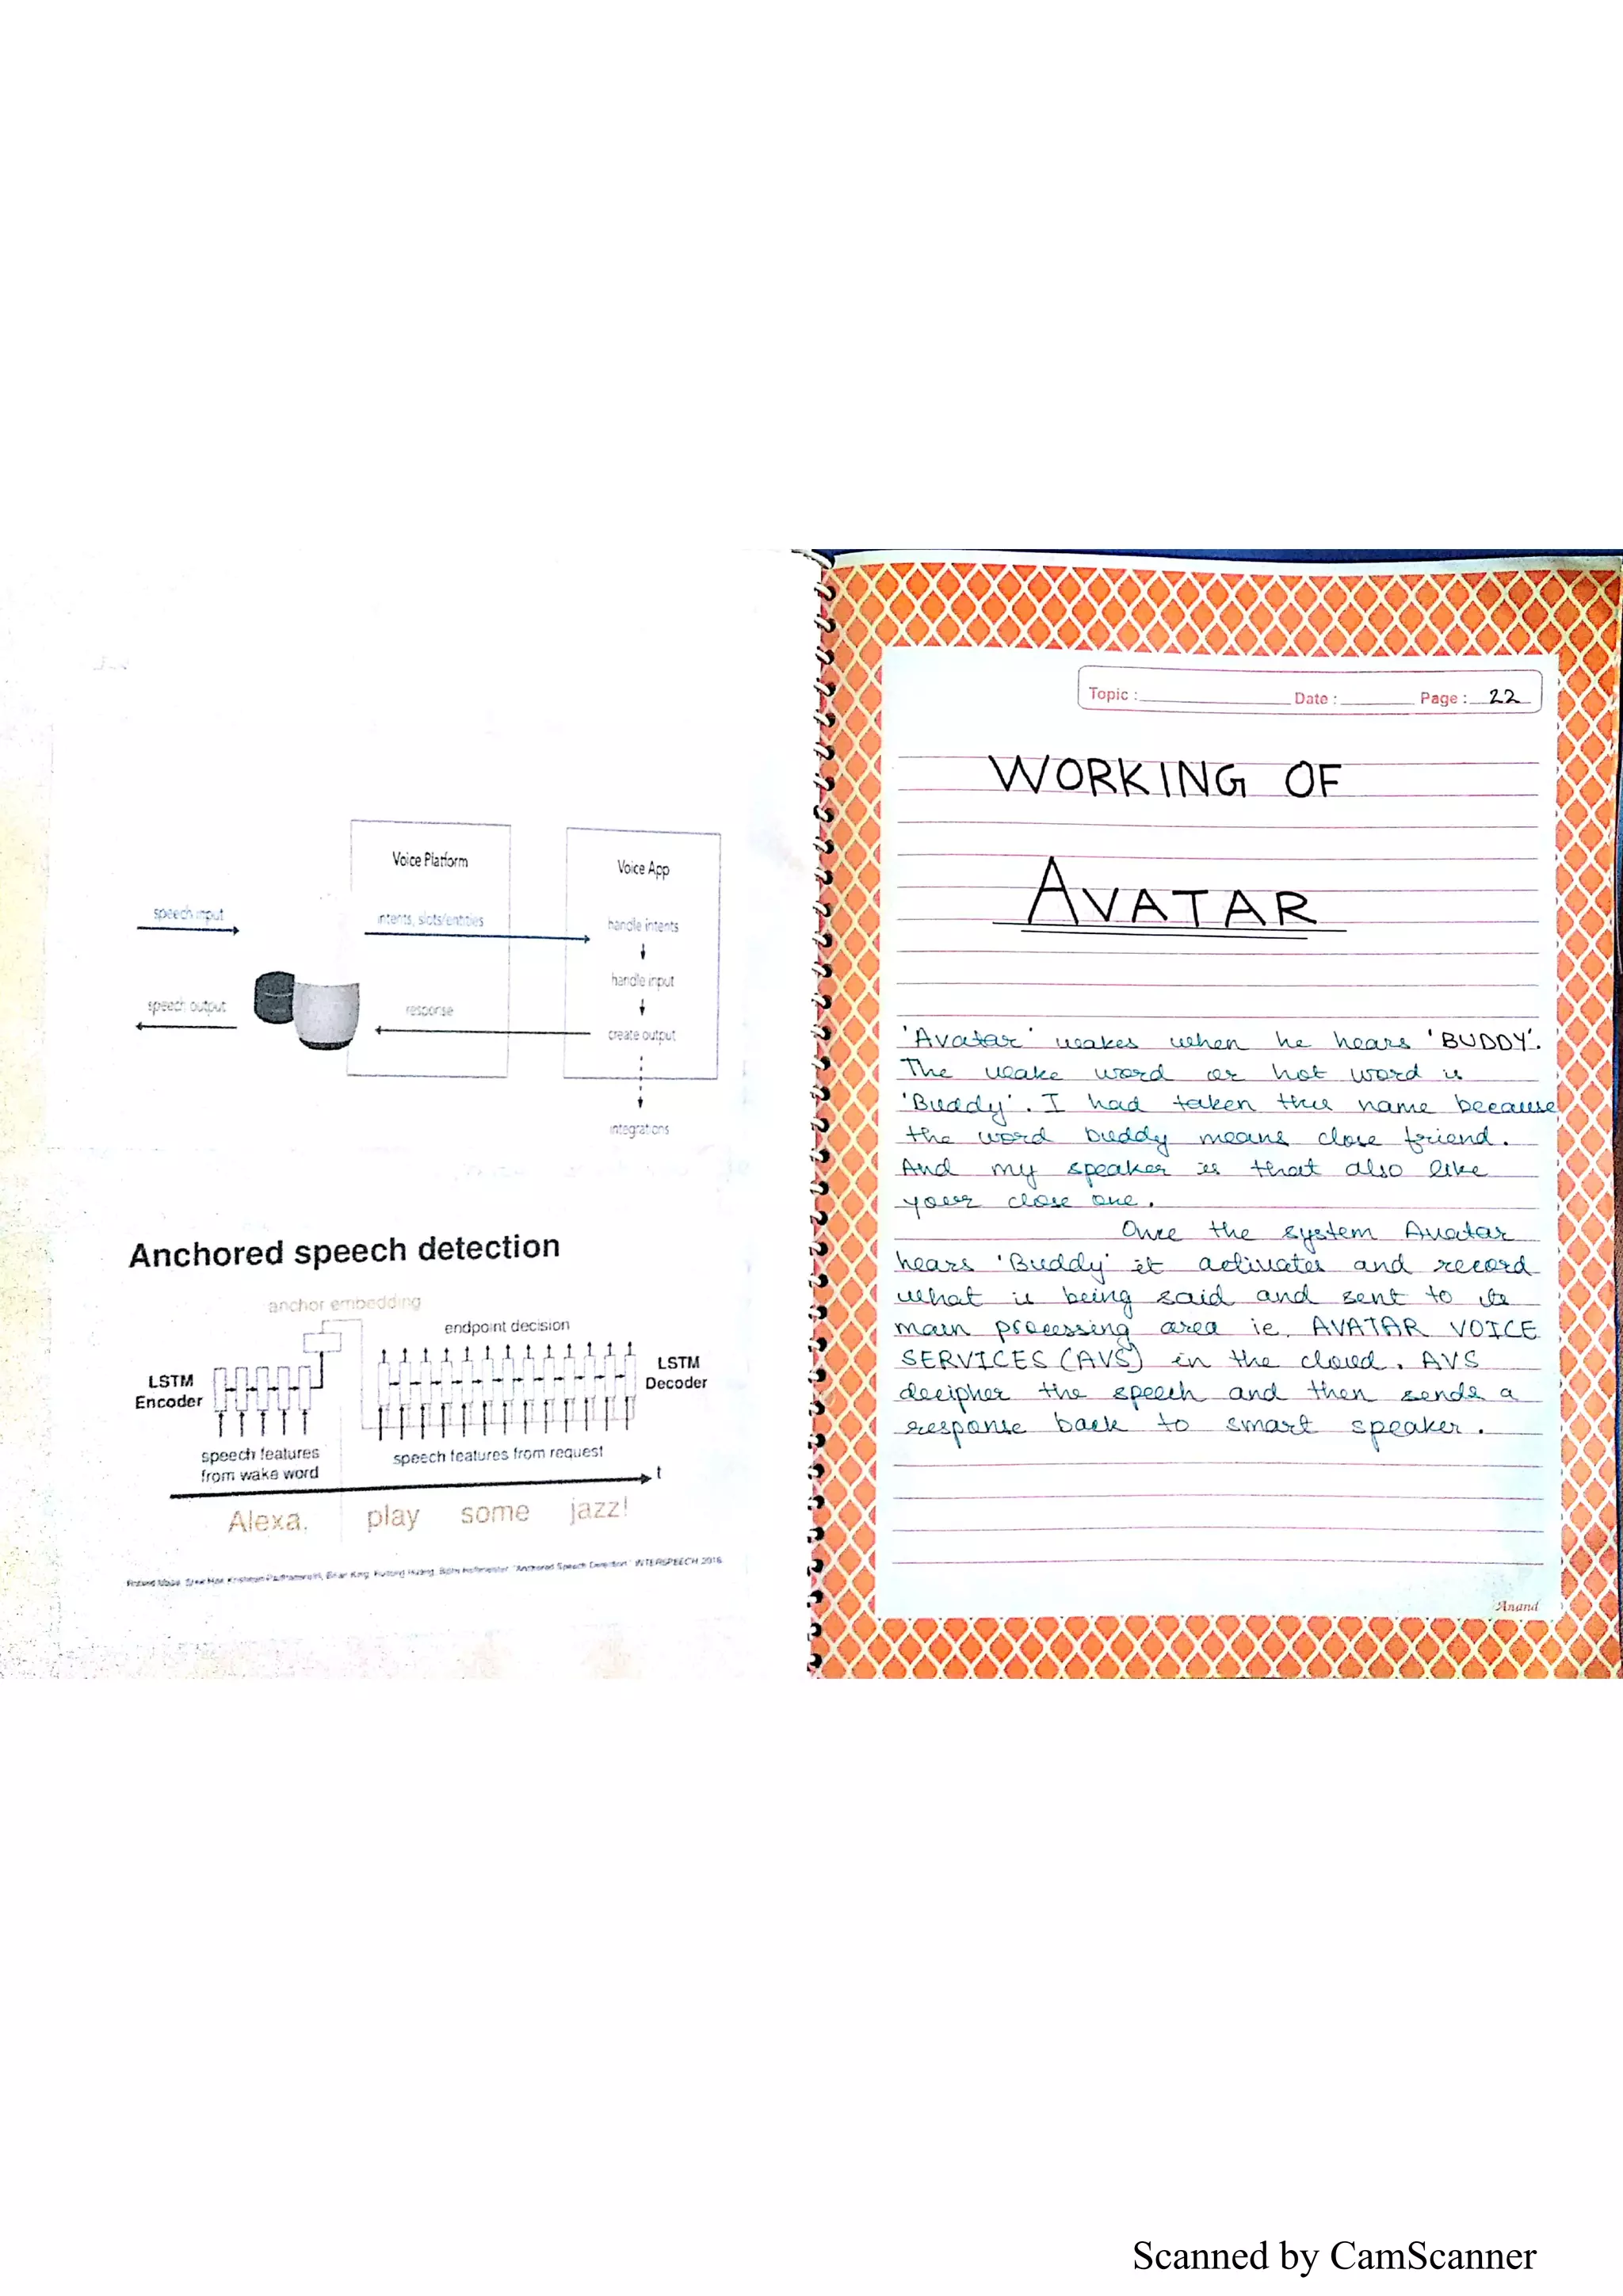 Voice Platform
Voice App
speech input
intents, slots/entities
handle intents
handle input
speech output
response
create output
integrations
Anchored speech detection
anchor embedding
endpoint decision
LSTM
Encoder
LSTM
Decoder
speech features
from wake word
speech features from request
t
Alexa, play some jazz!
"Anchored Speech Detection" INTERSPEECH 2016
Topic : Date : Page : 22
WORKING OF
AVATAR
'Avatar' wakes when he hears 'BUDDY'.
The wake word or hot word is
'Buddy'. I had taken this name because
the word buddy means close friend.
And my speaker is that also like
your close one.
Once the system Avatar
hears 'Buddy' it activates and record
what is being said and sent to its
main processing area ie. AVATAR VOICE
SERVICES (AVS) in the cloud. AVS
decipher the speech and then sends a
response back to smart speaker.
Anand
Scanned by CamScanner